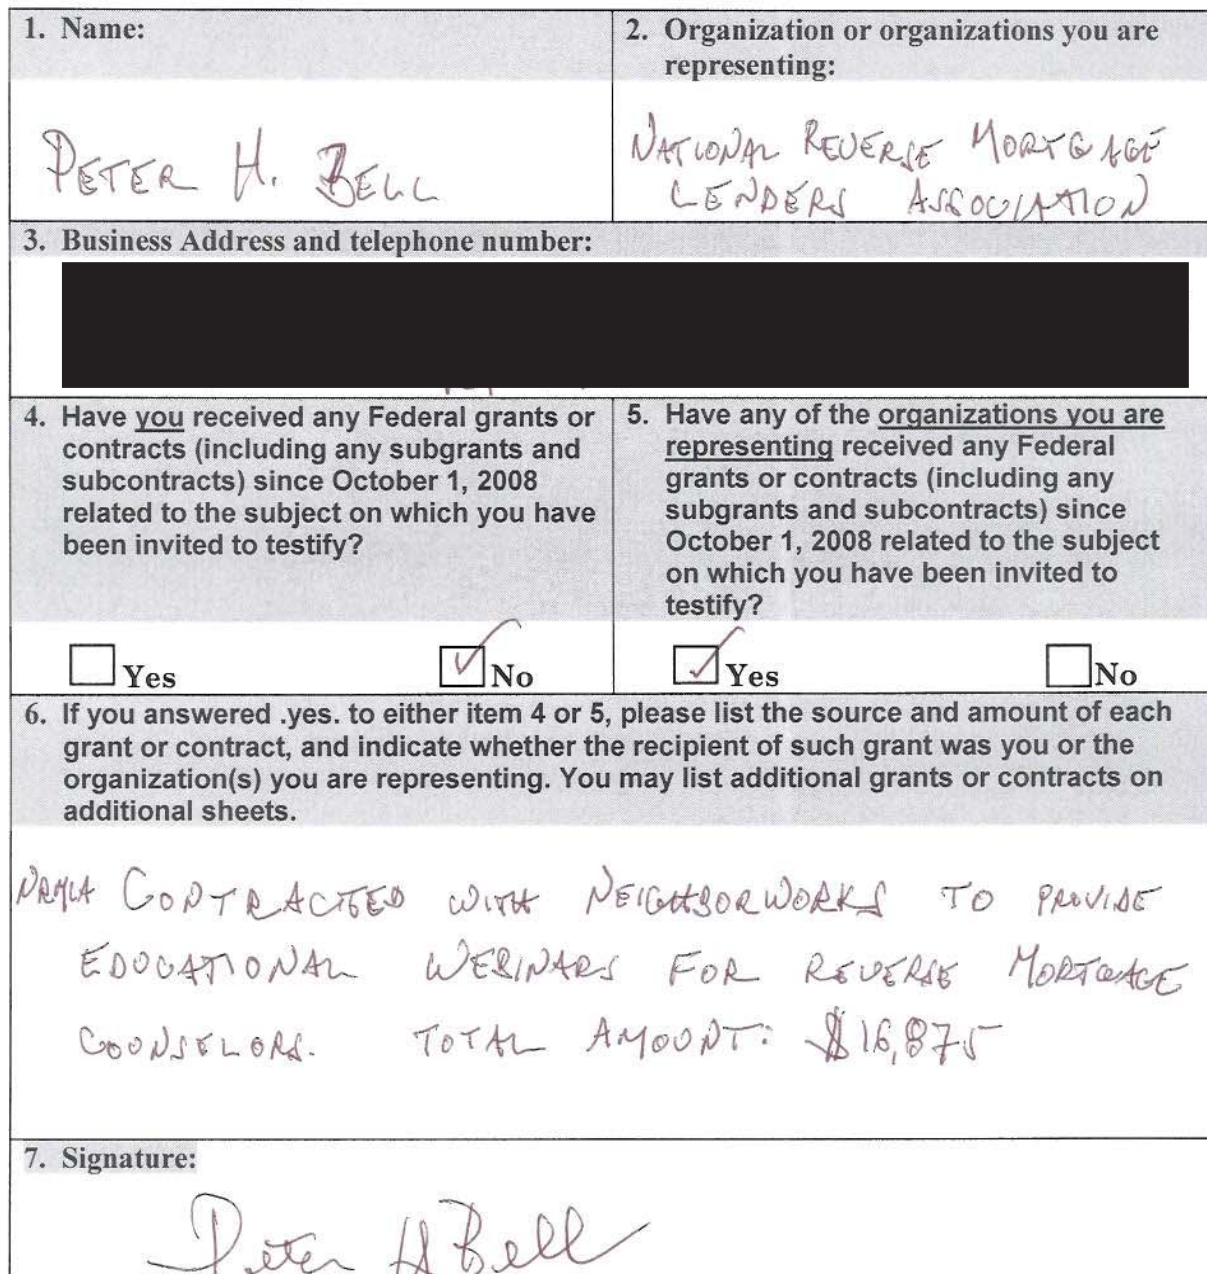 1. Name:
PETER H. BELL
2. Organization or organizations you are
representing:
NATIONAL REVERSE MORTGAGE
LENDERS ASSOCIATION
3. Business Address and telephone number:
4. Have you received any Federal grants or
contracts (including any subgrants and
subcontracts) since October 1, 2008
related to the subject on which you have
been invited to testify?
Yes
No
5. Have any of the organizations you are
representing received any Federal
grants or contracts (including any
subgrants and subcontracts) since
October 1, 2008 related to the subject
on which you have been invited to
testify?
Yes
No
6. If you answered .yes. to either item 4 or 5, please list the source and amount of each
grant or contract, and indicate whether the recipient of such grant was you or the
organization(s) you are representing. You may list additional grants or contracts on
additional sheets.
NRMLA CONTRACTED WITH NEIGHBORWORKS TO PROVIDE
EDUCATIONAL WEBINARS FOR REVERSE MORTGAGE
COUNSELORS. TOTAL AMOUNT: $16,875
7. Signature:
Peter H Bell